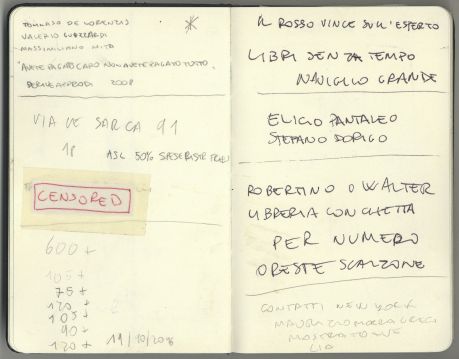 TOMMASO DE LORENZIS
VALERIO GUIZZARDI
MASSIMILIANO MITA
"AVETE PAGATO CARO NON AVETE PAGATO TUTTO"
DERIVEAPPRODI 2008
VIALE SARCA 91
1P ASL 50%
CENSORED
600 +
105 +
75 +
120 +
105 +
90 +
120 + 11/10/2016
IL ROSSO VINCE SULL'ESPERTO
LIBRI SENZA TEMPO
NAVIGLIO GRANDE
ELIGIO PANTALEO
STEFANO DORIGO
ROBERTINO O WALTER
LIBRERIA CONCHETTA
PER NUMERO
ORESTE SCALZONE
CONTATTI NEW YORK
MAURIZIO
MOSTRATO
LIA